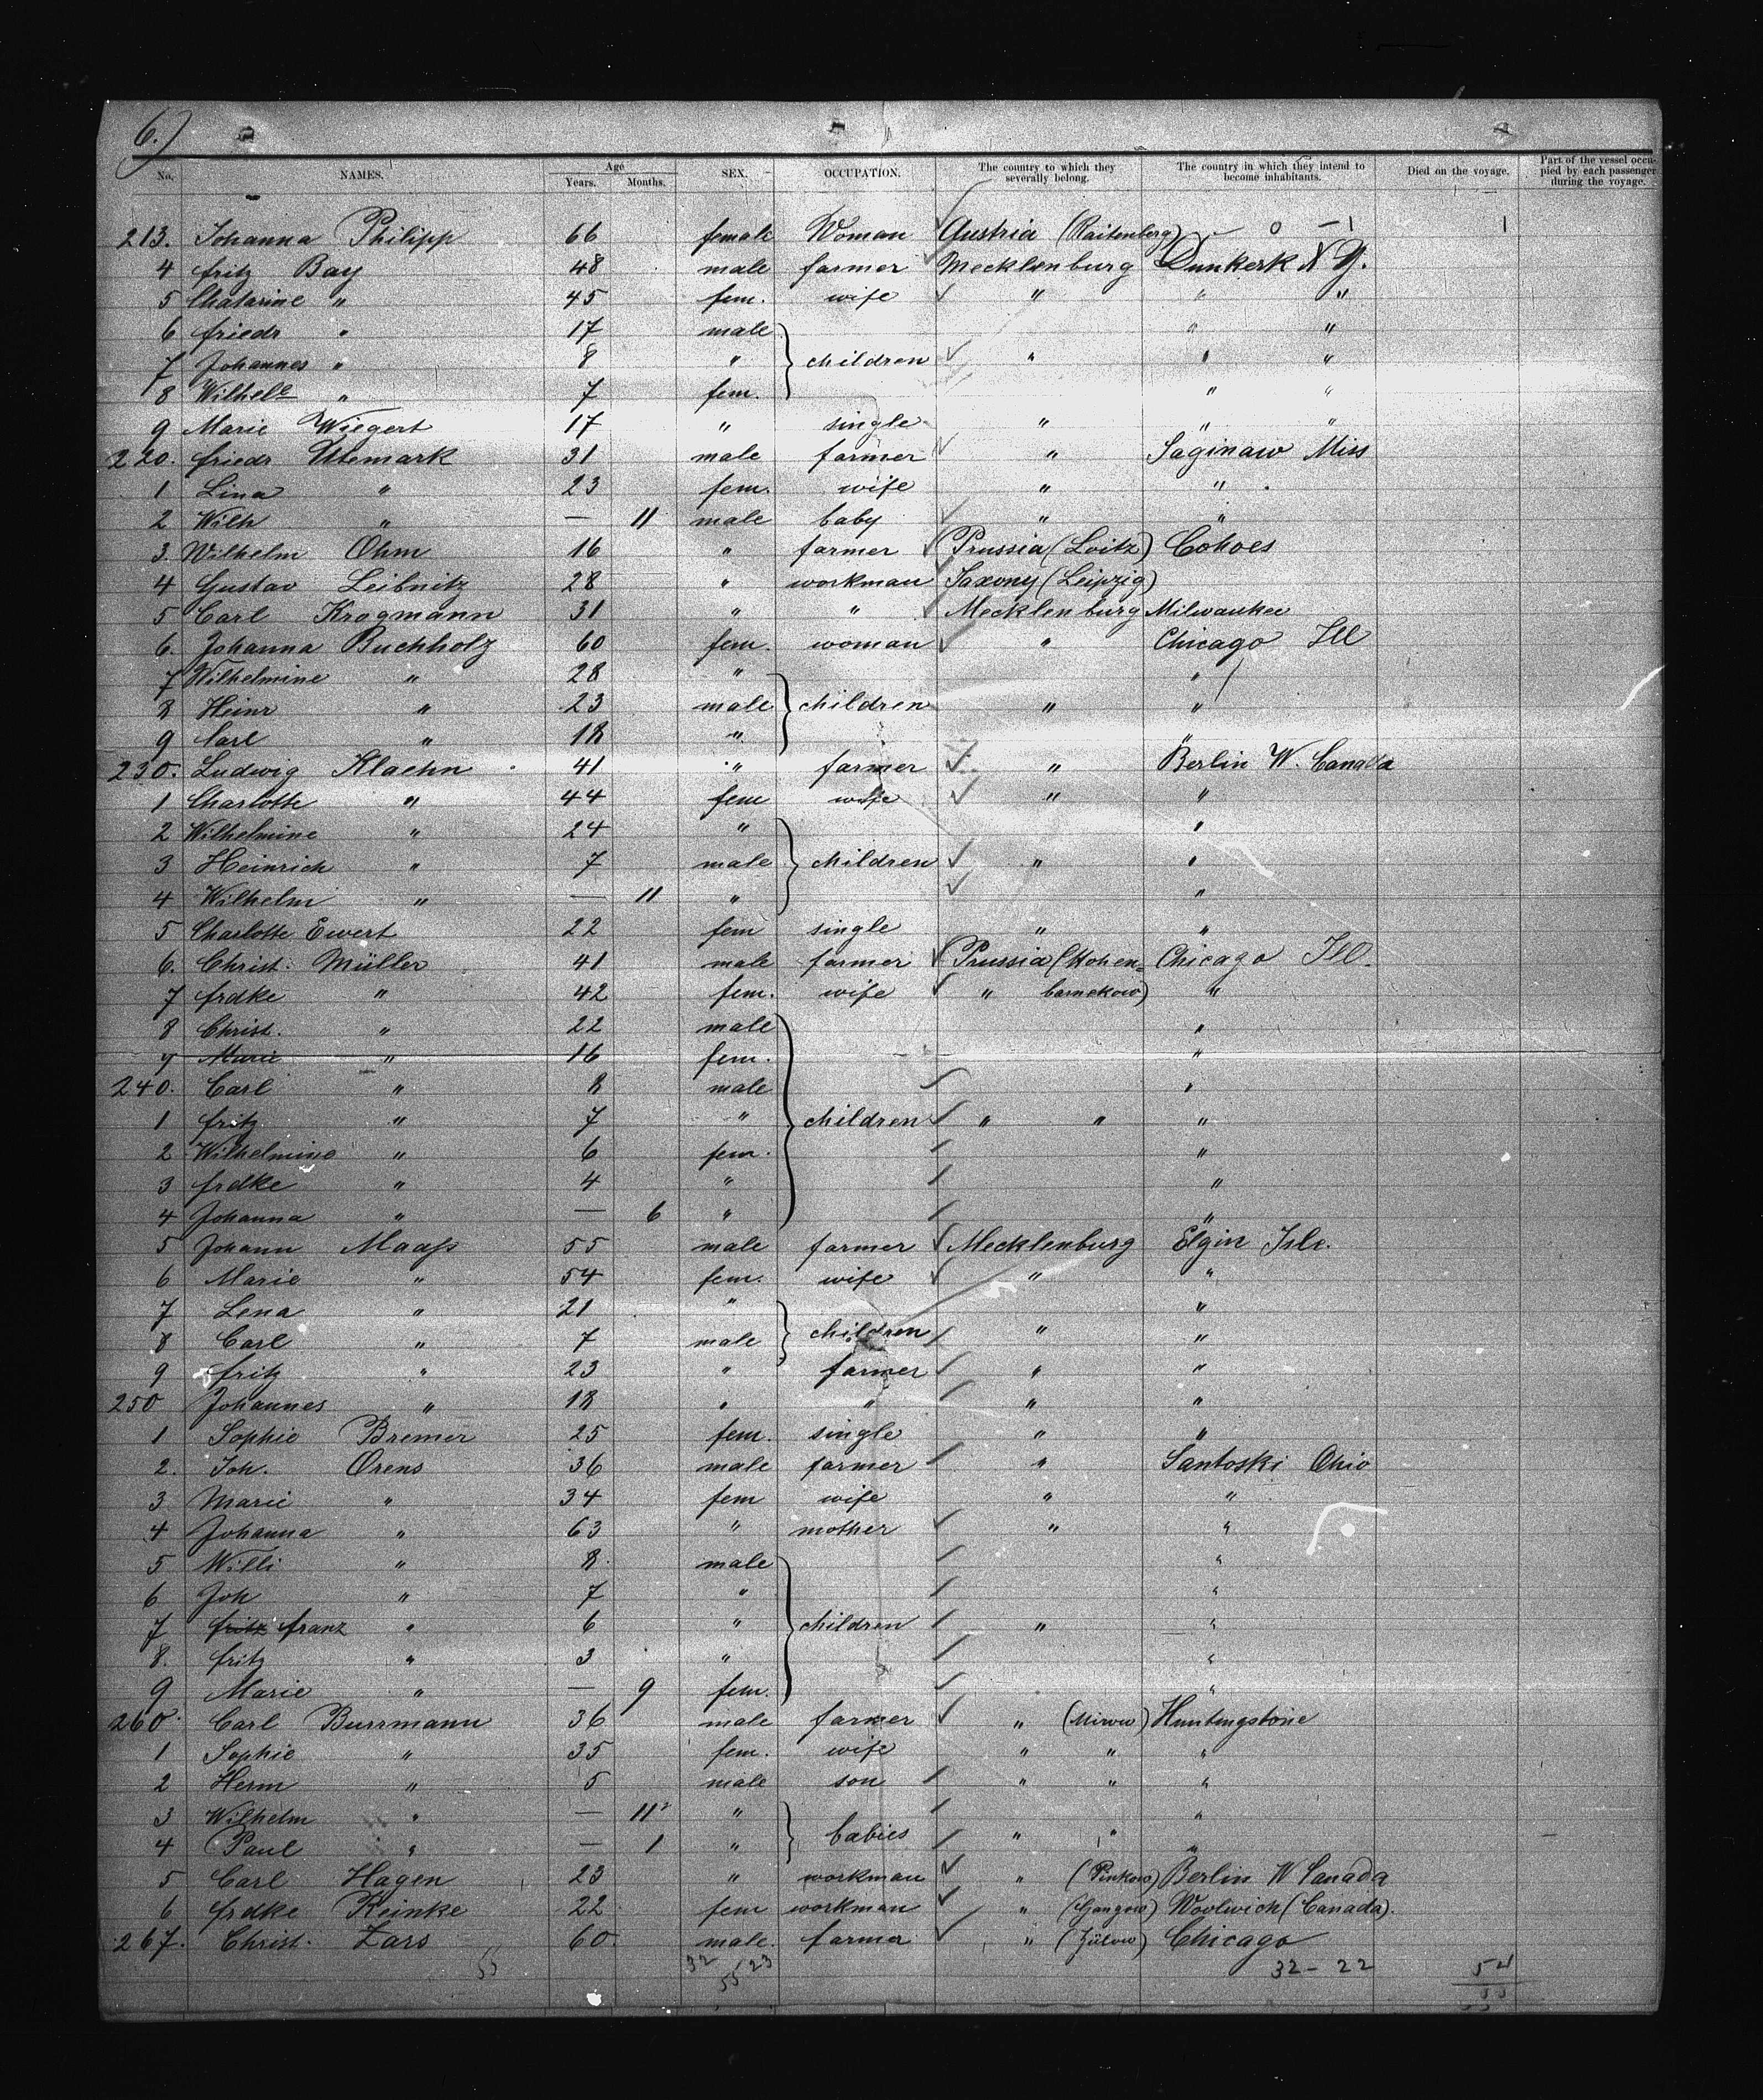 6.)
No. NAMES. Age Years. Months. SEX. OCCUPATION. The country to which they severally belong. The country in which they intend to become inhabitants. Died on the voyage. Part of the vessel occupied by each passenger during the voyage.
213. Johanna Philipp 66 female Woman Austria (Raitenberg) - 0 - 1 1
4 Fritz Bay 48 male farmer Mecklenburg Dunkerk N Y.
5 Chatarine " 45 fem. wife " " "
6 Friedr " 17 male " "
7 Johannes " 8 " children " " "
8 Wilhele " 7 fem. " "
9 Marie Wiegert 17 " single " " "
220. Friedr Utemark 31 male farmer " Saginaw Miss
1 Lina " 23 fem. wife " "
2 Wilh " — 11 male baby " "
3. Wilhelm Ohm 16 " farmer Prussia (Loitz) Cohoes
4 Gustav Leibnitz 28 " workman Saxony (Leipzig)
5 Carl Krogmann 31 " " Mecklenburg Milwaukee
6. Johanna Buchholz 60 fem. woman " Chicago Ill
7 Wilhelmine " 28 " "
8 Heinr " 23 male children " "
9 Carl " 18 " "
230. Ludwig Klaehn 41 " farmer " Berlin W. Canada
1 Charlotte " 44 fem wife " "
2 Wilhelmine " 24 " "
3 Heinrich " 7 male children " "
4 Wilhelm " — 11 " "
5 Charlotte Ewert 22 fem single " "
6. Christ: Müller 41 male farmer Prussia (Hohen= Chicago Ill.
7 Frdke " 42 fem. wife " barnekow) "
8 Christ. " 22 male "
9 Marie " 16 fem. "
240. Carl " 8 male "
1 Fritz " 7 " children " " "
2 Wilhelmine " 6 fem. "
3 Frdke " 4 " "
4 Johanna " — 6 " "
5 Johann Maaß 55 male farmer Mecklenburg Elgin Isle.
6 Marie " 54 fem. wife " "
7 Lena " 21 " "
8 Carl " 7 male children " "
9 Fritz " 23 " farmer " "
250 Johannes " 18 " " " "
1 Sophie Bremer 25 fem. single " "
2. Joh. Orens 36 male farmer " Santoski Ohio
3 Marie " 34 fem wife " "
4 Johanna " 63 " mother " "
5 Willi " 8. male "
6 Joh " 7 " "
7 Fritz Franz " 6 " children " "
8. Fritz " 3 " "
9 Marie " — 9 fem. "
260. Carl Burrmann 36 male farmer " (Mirow) Huntingstone
1 Sophie " 35 fem. wife " " "
2 Herm " 5 male son " " "
3 Wilhelm " — 11 " "
4 Paul " — 1 " babies " " "
5 Carl Hagen 23 " workman " (Pinkow) Berlin W Canada
6 Frdke Reinke 22 fem workman " Woolwich (Canada).
267. Christ. Zars 60 male. farmer " (Zülow) Chicago
55 32 23 32 - 22 54
55 55